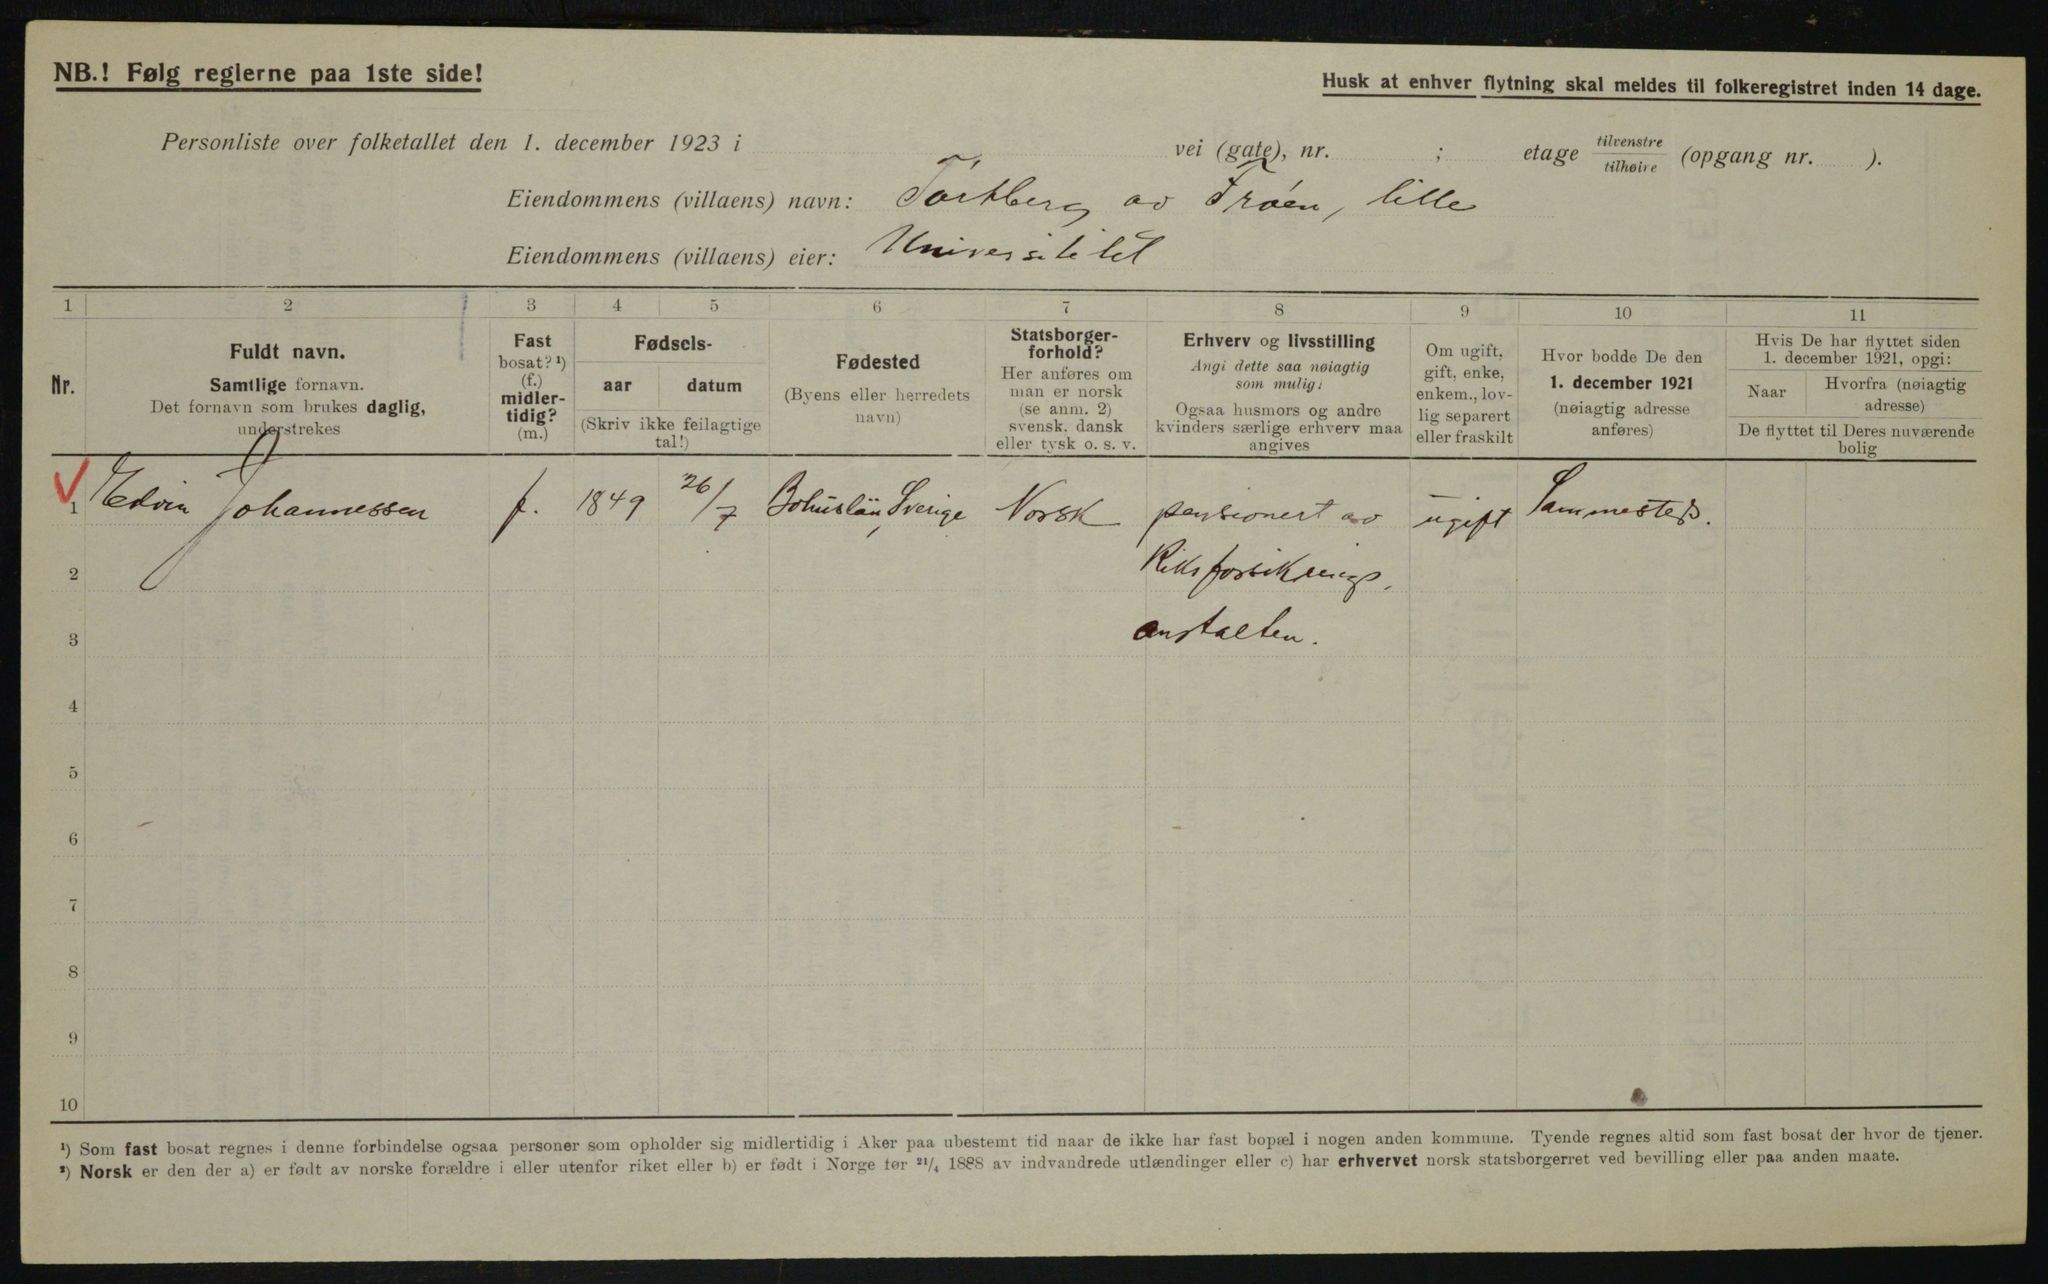 NB.! Følg reglerne paa 1ste side!
Husk at enhver flytning skal meldes til folkeregistret inden 14 dage.
Personliste over folketallet den 1. december 1923 i vei (gate), nr. ; etage tilvenstre/tilhøire (opgang nr. ).
Eiendommens (villaens) navn: av Frøen, lille
Eiendommens (villaens) eier: Universitetet
1 2 3 4 5 6 7 8 9 10 11
Nr.
Fuldt navn.
Samtlige fornavn.
Det fornavn som brukes daglig,
understrekes
Fast
bosat? ¹)
(f.)
midler-
tidig?
(m.)
Fødsels-
aar datum
(Skriv ikke feilagtige
tal!)
Fødested
(Byens eller herredets
navn)
Statsborger-
forhold?
Her anføres om
man er norsk
(se anm. 2)
svensk, dansk
eller tysk o. s. v.
Erhverv og livsstilling
Angi dette saa nøiagtig
som mulig:
Ogsaa husmors og andre
kvinders særlige erhverv maa
angives
Om ugift,
gift, enke,
enkem., lov-
lig separert
eller fraskilt
Hvor bodde De den
1. december 1921
(nøiagtig adresse
anføres)
Hvis De har flyttet siden
1. december 1921, opgi:
Naar
Hvorfra (nøiagtig
adresse)
De flyttet til Deres nuværende
bolig
1 Edvin Johannessen f. 1849 26/7 Bohuslän, Sverige Norsk pensionert av ugift Sammesteds.
2 Riksforsikrings.
3 anstalten.
4
5
6
7
8
9
10
¹) Som fast bosat regnes i denne forbindelse ogsaa personer som opholder sig midlertidig i Aker paa ubestemt tid naar de ikke har fast bopæl i nogen anden kommune. Tyende regnes altid som fast bosat der hvor de tjener.
²) Norsk er den der a) er født av norske forældre i eller utenfor riket eller b) er født i Norge før 21/4 1888 av indvandrede utlændinger eller c) har erhvervet norsk statsborgerret ved bevilling eller paa anden maate.